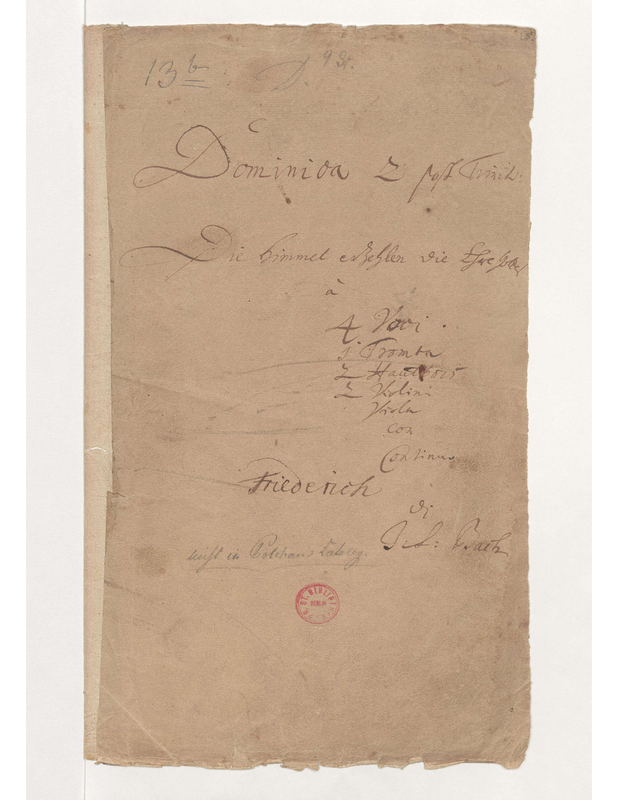 13 b
D
Dominica 2 post Trinit:
Die Himmel erzehlen die Ehre Gottes
à
4 Voci.
1. Tromba
2 Hautbois
2 Violini
Viola
con
Continuo
Friederich
di
J. S: Bach
nicht in Pölchaus Katalog.